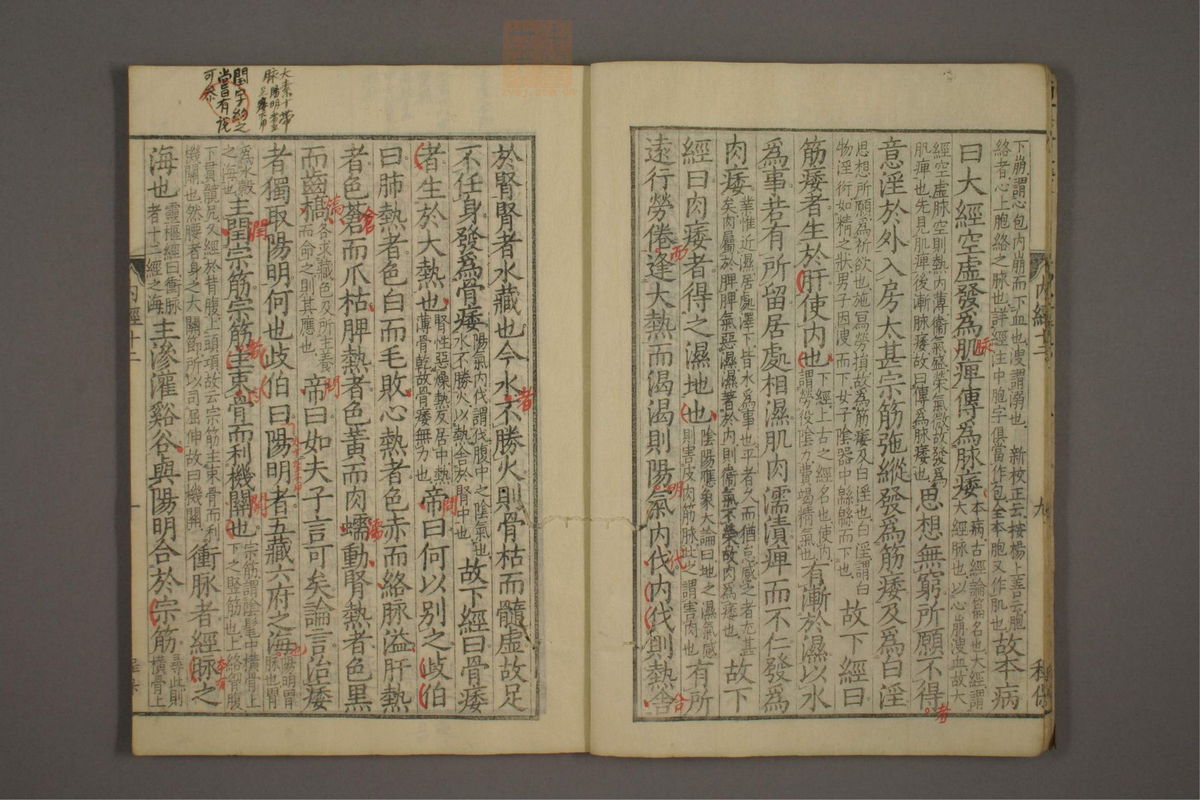 下崩謂心包内崩而下血也溲謂溺也　新校正云按楊上善云胞
絡者心上胞絡之脉也詳經注中胞字俱當作包全本胞又作肌也
故本病
曰大經空虚發爲肌痺傳爲脉痿
本病古經論篇名也大經謂
大經脉也以心崩溲血故大
經空虚脉空則熱内薄衞氣盛榮氣微故發爲
肌痺也先見肌痺後漸脉痿故曰傳爲脉痿也
思想無窮所願不得
意淫於外入房太甚宗筋弛縱發爲筋痿及爲白淫
思想所願爲祈欲也施寫勞損故爲筋痿及白淫也白淫謂白
物淫衍如精之狀男子因溲而下女子陰器中緜緜而下也
故下經曰
筋痿者生於肝使内也
下經上古之經名也使内
謂勞役陰力費竭精氣也
有漸於濕以水
爲事若有所留居處相濕肌肉濡漬痺而不仁發爲
肉痿
業惟近濕居處澤下皆水爲事也平者久而猶怠感之者尤甚
矣肉屬於脾脾氣惡濕濕著於内則衞氣不榮故肉爲痿也
故下
經曰肉痿者得之濕地也
陰陽應象大論曰地之濕氣感
則害皮肉筋脉此之謂害肉也
有所
遠行勞倦逢大熱而渴渴則陽氣内伐内伐則熱舍
於腎腎者水藏也今水不勝火則骨枯而髓虚故足
不任身發爲骨痿
陽氣内伐謂伐腹中之陰氣也
水不勝火以熱舍於腎中也
故下經曰骨痿
者生於大熱也
腎性惡燥熱反居中熱
薄骨乾故骨痿無力也
帝曰何以別之歧伯
曰肺熱者色白而毛敗心熱者色赤而絡脉溢肝熱
者色蒼而爪枯脾熱者色黄而肉蠕動腎熱者色黒
而齒槁
各求藏色及所主養
而命之則其應也
帝曰如夫子言可矣論言治痿
者獨取陽明何也歧伯曰陽明者五藏六府之海
陽明胃
脉也胃
爲水穀
之海也
主閏宗筋宗筋主束骨而利機關也
宗筋謂陰髦中横骨上
下之竪筋也上絡胷腹
下貫髖尻又經於背腹上頭項故云宗筋主束骨而利
機關也然腰者身之大關節所以司屈伸故曰機關
衝脉者經脉之
海也
靈樞經曰衝脉
者十二經之海
主滲灌谿谷與陽明合於宗筋
尋此則
横骨上
内經十二
九
内經十二
閏字約之
當有說
可參